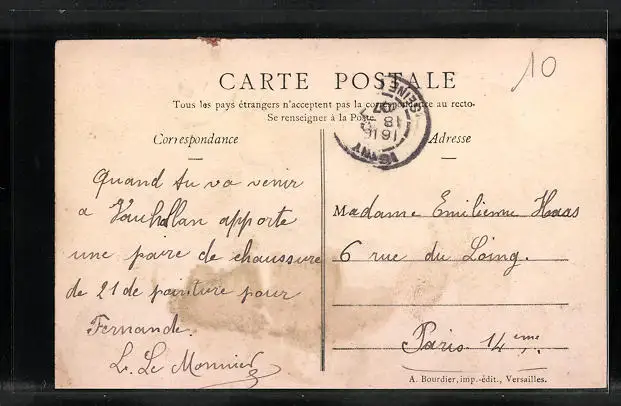 10
CARTE POSTALE
Tous les pays étrangers n'acceptent pas la correspondance au recto.
Se renseigner à la Poste.
Correspondance
Quand tu va venir
a Vauhallan apporte
une paire de chaussure
de 21 de pointure pour
Fernande.
L. Le Monnier
SEINE
18
07
IGNY
Adresse
Madame Emilienne Haas
6 rue du Loing.
Paris 14eme.
A. Bourdier, imp.-édit., Versailles.